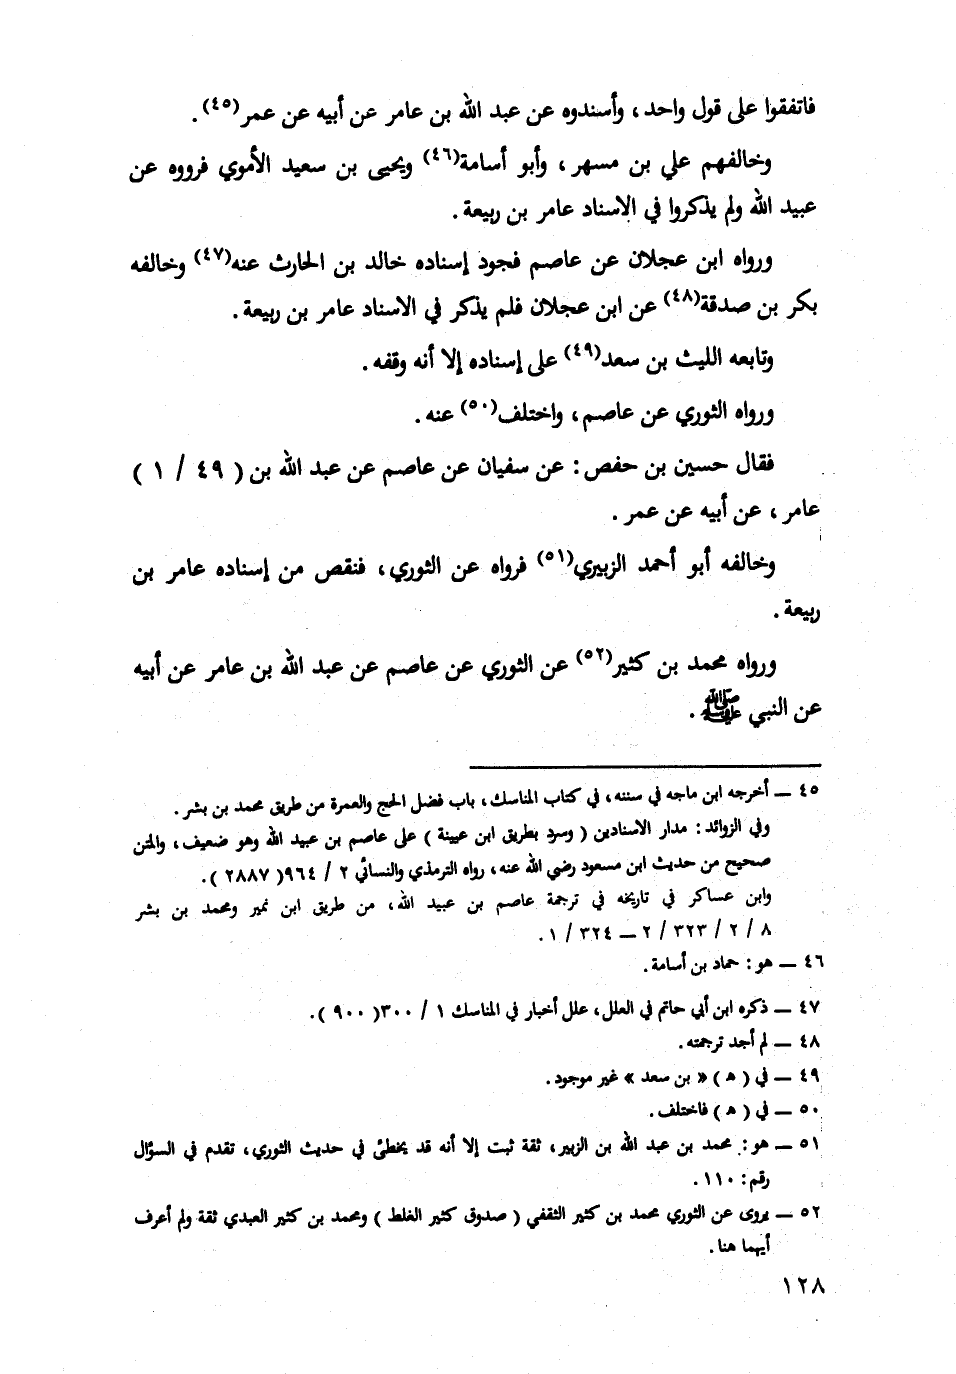 فاتفقوا على قول واحد، وأسندوه عن عبد الله بن عامر عن أبيه عن عمر(٤٥).
وخالفهم علي بن مسهر، وأبو أسامة(٤٦) ويحيى بن سعيد الأموي فرووه عن
عبيد الله ولم يذكروا في الاسناد عامر بن ربيعة.
ورواه ابن عجلان عن عاصم فجود إسناده خالد بن الحارث عنه(٤٧) وخالفه
بكر بن صدقة(٤٨) عن ابن عجلان فلم يذكر في الاسناد عامر بن ربيعة.
وتابعه الليث بن سعد(٤٩) على إسناده إلا أنه وقفه.
ورواه الثوري عن عاصم، واختلف(٥٠) عنه.
فقال حسين بن حفص: عن سفيان عن عاصم عن عبد الله بن ( ٤٩ / ١ )
عامر، عن أبيه عن عمر.
وخالفه أبو أحمد الزبيري(٥١) فرواه عن الثوري، فنقص من إسناده عامر بن
ربيعة.
ورواه محمد بن كثير(٥٢) عن الثوري عن عاصم عن عبد الله بن عامر عن أبيه
عن النبي ﷺ.
٤٥ — أخرجه ابن ماجه في سننه، في كتاب المناسك، باب فضل الحج والعمرة من طريق محمد بن بشر.
وفي الزوائد: مدار الاسنادين ( وسرد بطريق ابن عيينة ) على عاصم بن عبيد الله وهو ضعيف، والمتن
صحيح من حديث ابن مسعود رضي الله عنه، رواه الترمذي والنسائي ٢ / ٩٦٤( ٢٨٨٧ ).
وابن عساكر في تاريخه في ترجمة عاصم بن عبيد الله، من طريق ابن نمير ومحمد بن بشر
٨ / ٢ / ٣٢٣ / ٢ — ٣٢٤ / ١.
٤٦ — هو: حماد بن أسامة.
٤٧ — ذكره ابن أبي حاتم في العلل، علل أخبار في المناسك ١ / ٣٠٠( ٩٠٠ ).
٤٨ — لم أجد ترجمته.
٤٩ — في ( هـ ) « بن سعد » غير موجود.
٥٠ — في ( هـ ) فاختلف.
٥١ — هو: محمد بن عبد الله بن الزبير، ثقة ثبت إلا أنه قد يخطئ في حديث الثوري، تقدم في السؤال
رقم: ١١٠.
٥٢ — يروى عن الثوري محمد بن كثير الثقفي ( صدوق كثير الغلط ) ومحمد بن كثير العبدي ثقة ولم أعرف
أيهما هنا.
١٢٨